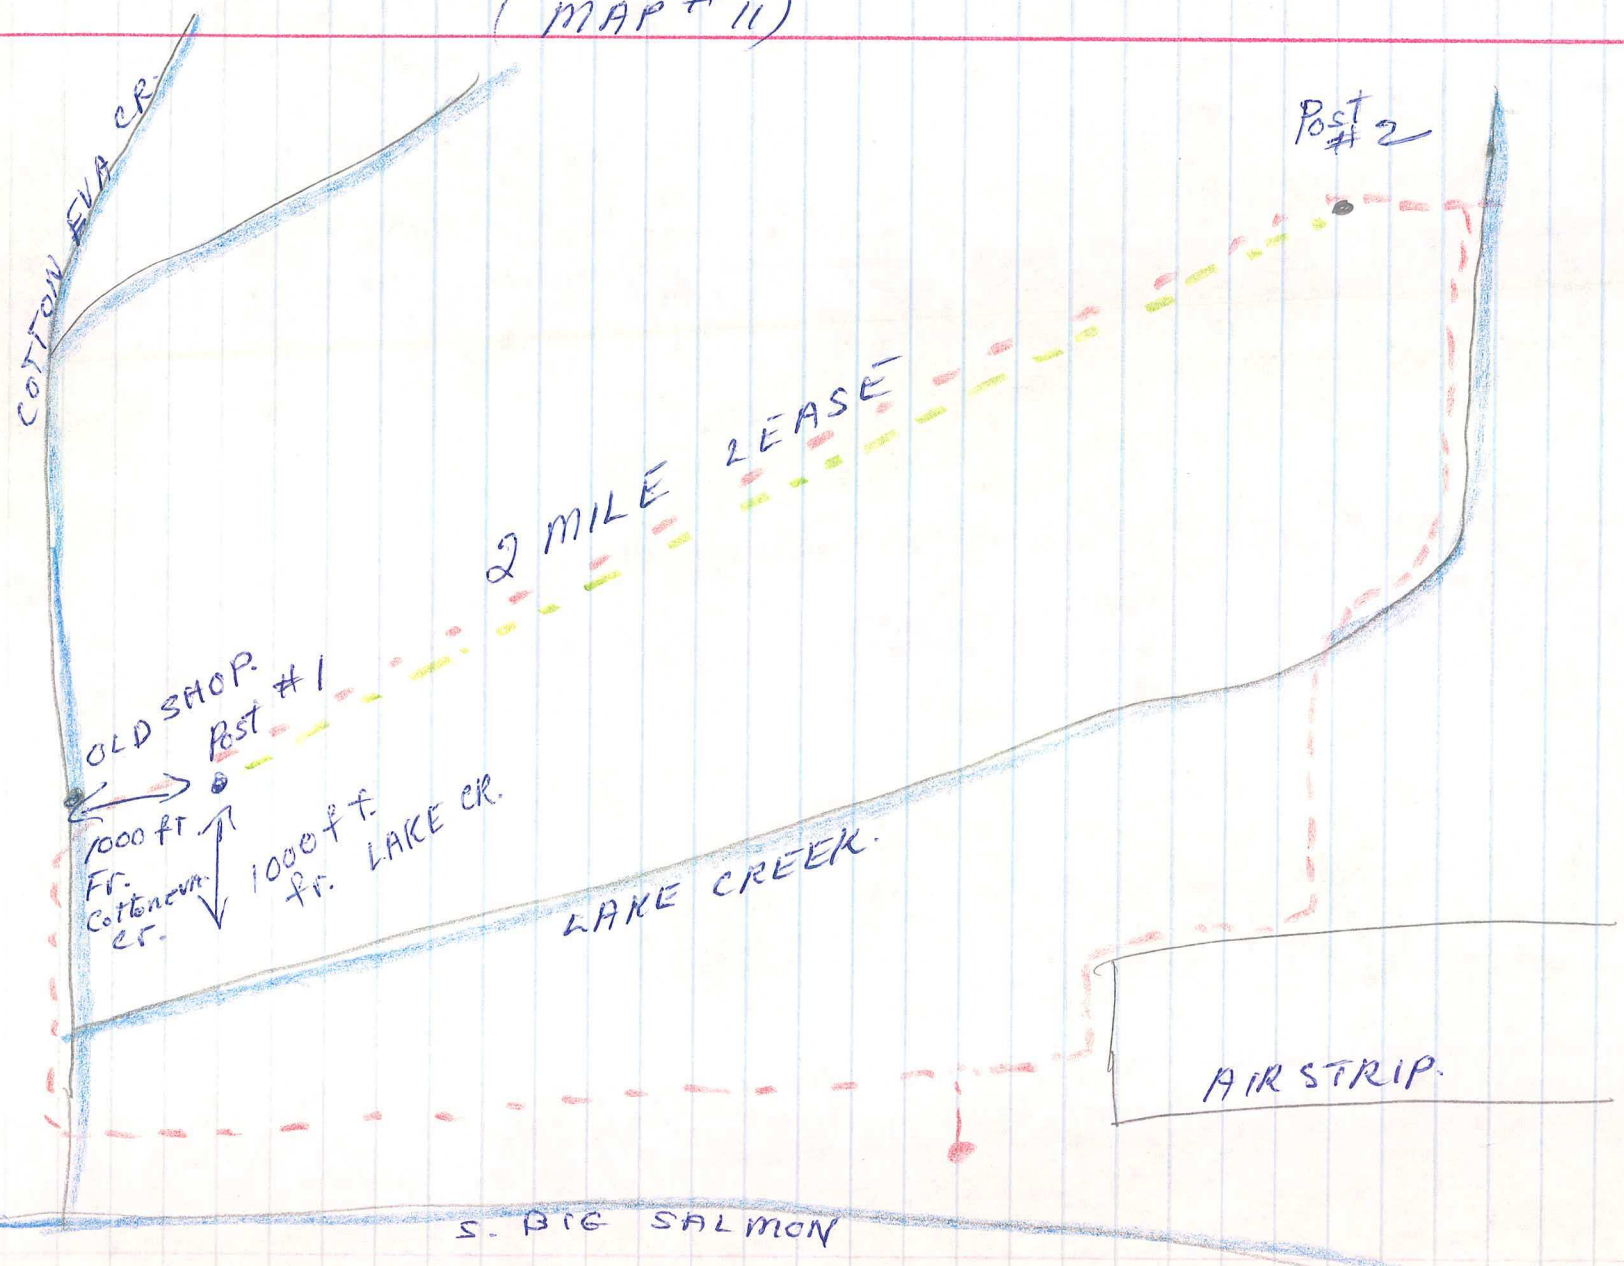 ( MAP # 11)
COTTON EVA CR.
Post
# 2
2 MILE LEASE
OLD SHOP.
Post #1
1000 ft.
Fr.
Cottoneva
cr.
1000 ft.
fr. LAKE CR.
LAKE CREEK.
AIRSTRIP.
S. BIG SALMON